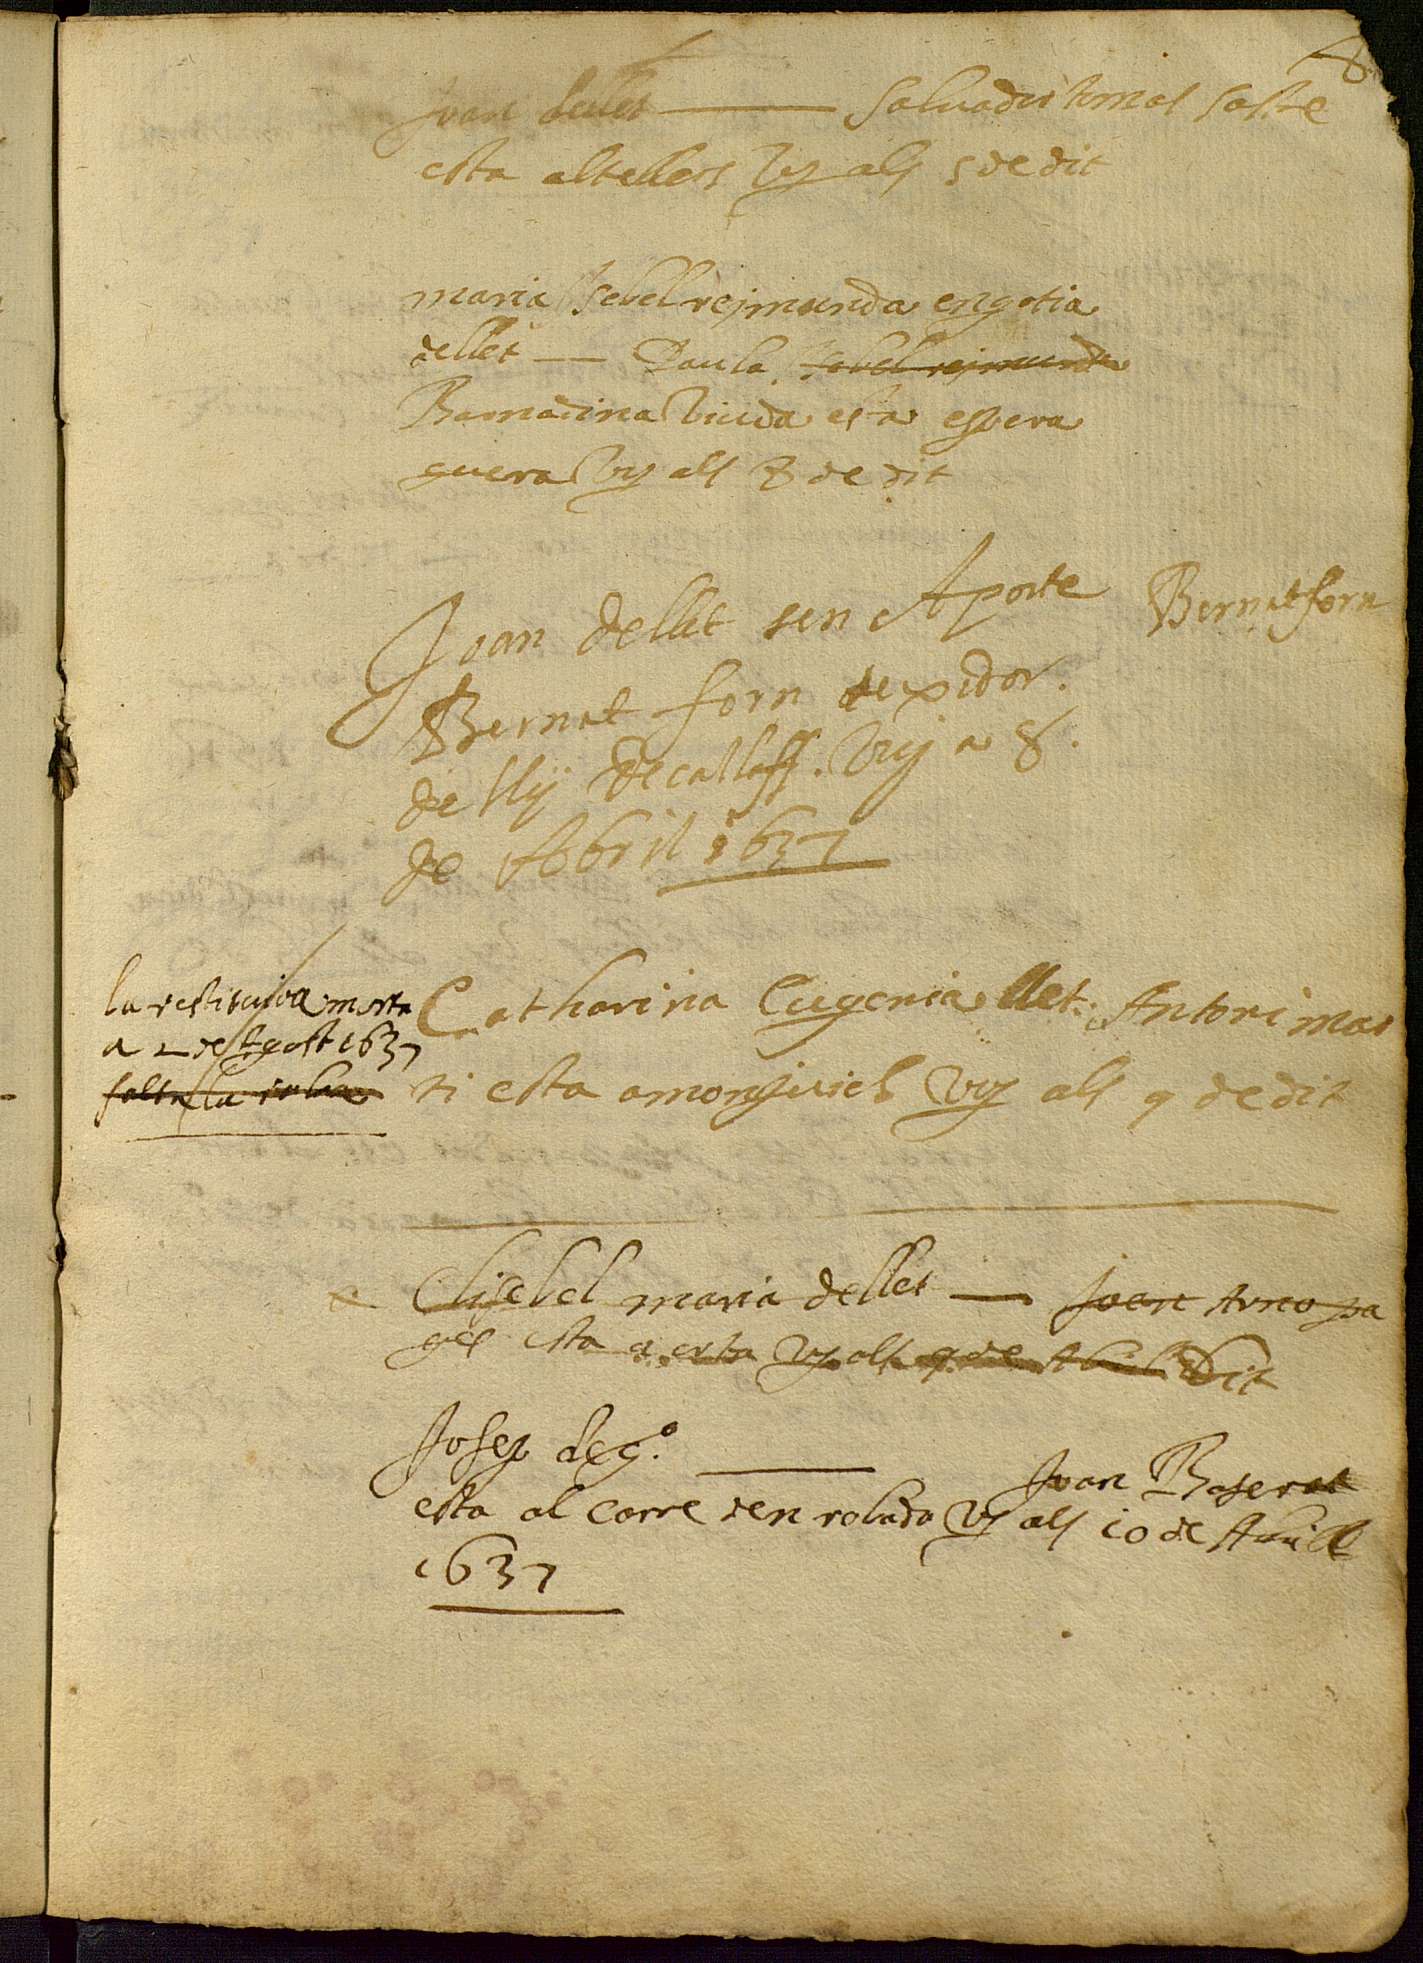 8
Joan dellet — Salvador tomas sastre
esta al tellers vy als 5 de dit
maria Isebel rejmunda engotia
dellet — Paula Isabel rejmunda
Barnadina viuda esta espera
guera vy als 8 de dit
Joan dellet sen Aporte Bernat forn
Bernat forn texidor.
de llij de callaff. Vuj a 8.
de Abril 1637
la restituida morta
a 2 de Agost 1637
falta la roba
Catharina Eugenia llet. Antoni mar
ti esta a monjuich vy als 9 de dit
Elisebel maria dellet — Joan Arno pa
ges esta a vy als 9 de Abril Dit
Josep deg.º —
Joan
esta al carre den robado vy als 10 de Abrill
1637